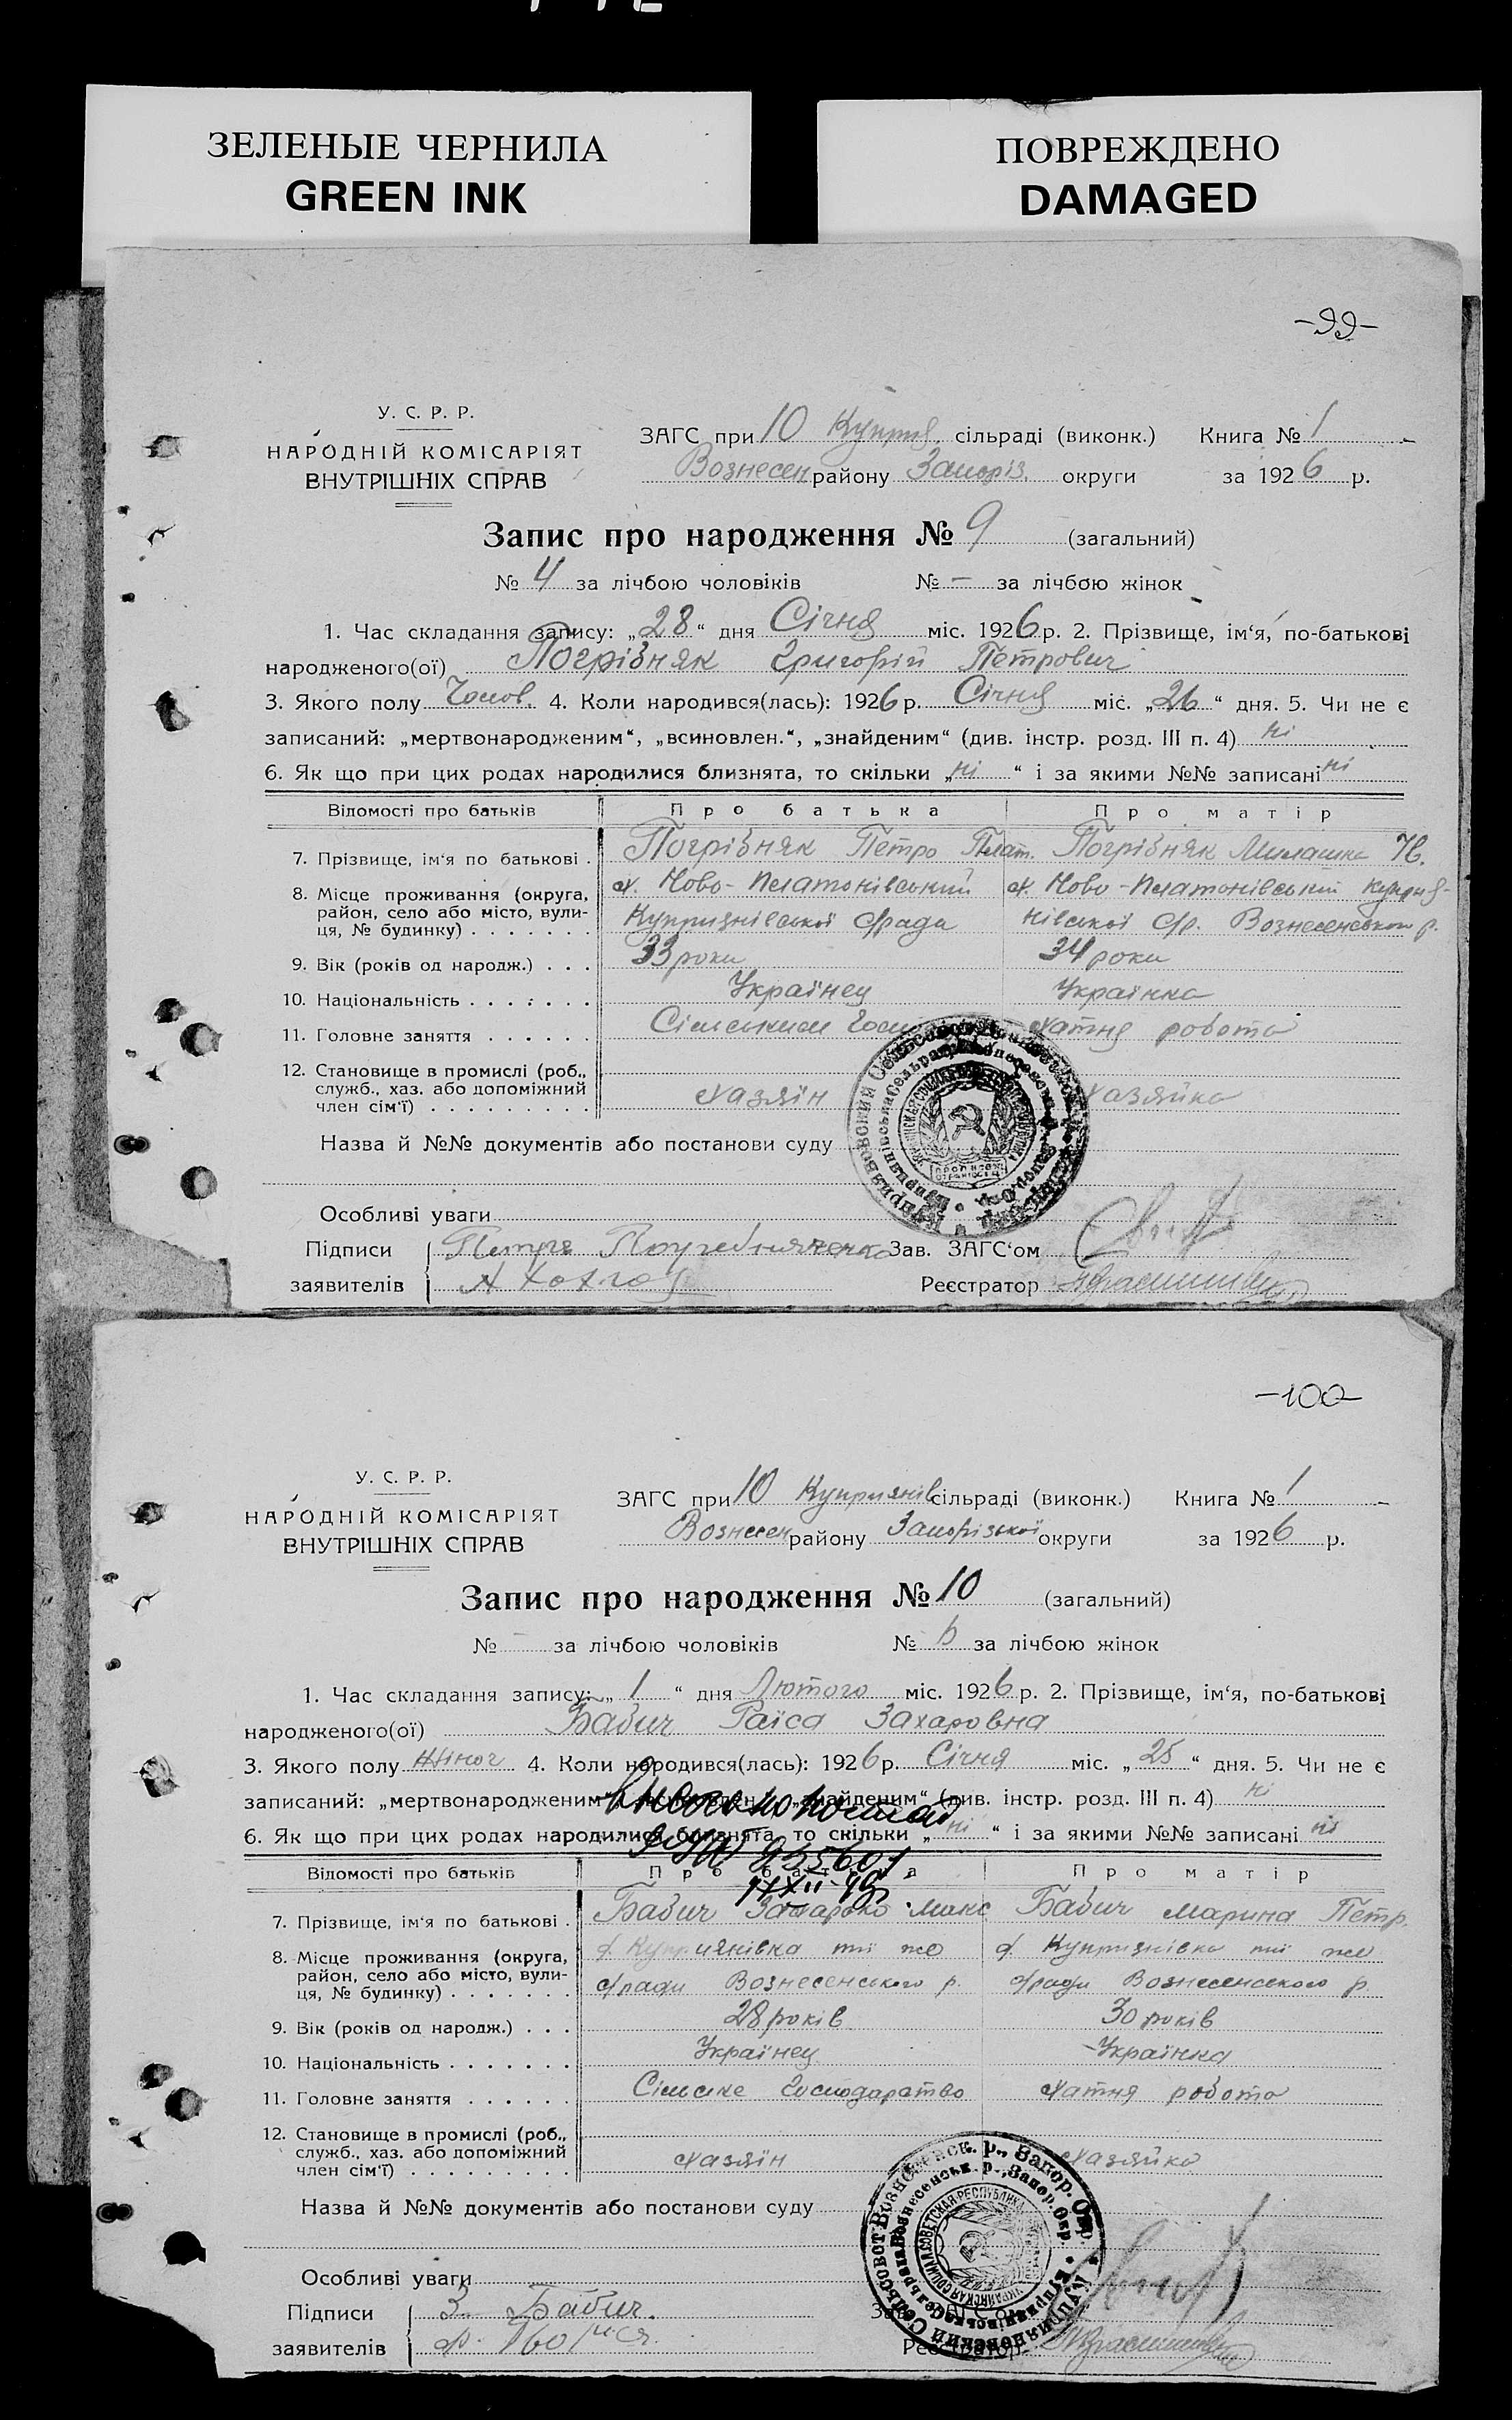 ЗЕЛЕНЫЕ ЧЕРНИЛА
GREEN INK
ПОВРЕЖДЕНО
DAMAGED
-99-
У. С. Р. Р.
НАРОДНІЙ КОМІСАРІЯТ
ВНУТРІШНІХ СПРАВ
ЗАГС при 10 Куприя. сільраді (виконк.) Книга № 1
Вознесен району Запоріз. округи за 1926 р.
Запис про народження № 9 (загальний)
№ 4 за лічбою чоловіків № — за лічбою жінок
1. Час складання запису: „28“ дня Січня міс. 1926 р. 2. Прізвище, ім‘я, по-батькові
народженого(ої) Погрібняк Григорій Петрович
3. Якого полу Чолов. 4. Коли народився(лась): 1926 р. Січня міс. „26“ дня. 5. Чи не є
записаний: „мертвонародженим“, „всиновлен.“, „знайденим“ (див. інстр. розд. III п. 4) ні
6. Як що при цих родах народилися близнята, то скільки „ні“ і за якими №№ записані ні
Відомості про батьків Про батька Про матір
7. Прізвище, ім‘я по батькові . Погрібняк Петро Плат. Погрібняк Милашка Н.
8. Місце проживання (округа, х. Ново-Платонівський х. Ново-Платонівський Куприя-
район, село або місто, вули- Куприянівської с/ради нівської с/р. Вознесенського р.
ця, № будинку) . . . . . . .
9. Вік (років од народж.) . . . 33 роки 34 роки
10. Національність . . . . . . . Українец Українка
11. Головне заняття . . . . . . Сільським Госп хатня робота
12. Становище в промислі (роб.,
служб., хаз. або допоміжний хазяїн хазяйка
член сім‘ї) . . . . . . . . .
Назва й №№ документів або постанови суду
Особливі уваги
Підписи Петро Зав. ЗАГС‘ом
заявителів Реєстратор
-100-
У. С. Р. Р.
НАРОДНІЙ КОМІСАРІЯТ
ВНУТРІШНІХ СПРАВ
ЗАГС при 10 Куприянів сільраді (виконк.) Книга № 1
Вознесен району Запорізької округи за 1926 р.
Запис про народження № 10 (загальний)
№ — за лічбою чоловіків № за лічбою жінок
1. Час складання запису: „1“ дня Лютого міс. 1926 р. 2. Прізвище, ім‘я, по-батькові
народженого(ої) Бабич Раїса Захаровна
3. Якого полу Жіноч 4. Коли народився(лась): 1926 р. Січня міс. „25“ дня. 5. Чи не є
записаний: „мертвонародженим“, „знайденим“ (див. інстр. розд. III п. 4) ні
6. Як що при цих родах народилися близнята, то скільки „ні“ і за якими №№ записані ні
Відомості про батьків Про батька Про матір
7. Прізвище, ім‘я по батькові . Бабич Захарько Макс Бабич Марина Петр.
8. Місце проживання (округа, с. Куприянівка тії же с. Куприянівка тії же
район, село або місто, вули- с/ради Вознесенського р. с/ради Вознесенського р.
ця, № будинку) . . . . . . .
9. Вік (років од народж.) . . . 28 років 30 років
10. Національність . . . . . . . Українец Українка
11. Головне заняття . . . . . . Сільське Господарство хатня робота
12. Становище в промислі (роб.,
служб., хаз. або допоміжний хазяїн хазяйка
член сім‘ї) . . . . . . . . .
Назва й №№ документів або постанови суду
Особливі уваги
Підписи З. Бабич.
заявителів Реєстратор